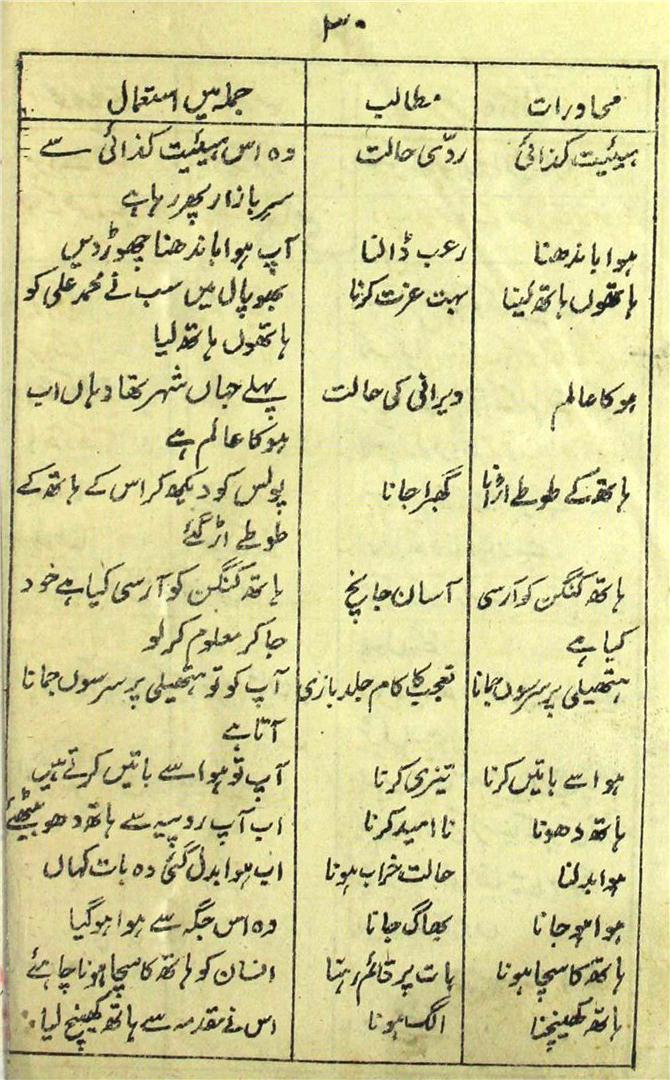 ۳۰
محاورات مطالب جملہ میں استعمال
ہیئیت کذائی ردّی حالت وہ اس ہیئیت کذائی سے
سرِ بازار پھر رہا ہے
ہوا باندھنا رعب ڈالنا آپ ہوا باندھنا چھوڑ دیں
ہاتھوں ہاتھ لینا بہت عزت کرنا بھوپال میں سب نے محمد علی کو
ہاتھوں ہاتھ لیا
ہو کا عالم ویرانی کی حالت پہلے جہاں شہر تھا وہاں اب
ہو کا عالم ہے
ہاتھ کے طوطے اڑانا گھبرا جانا پولس کو دیکھ کر اس کے ہاتھ کے
طوطے اڑ گئے
ہاتھ کنگن کو آرسی آسان جانچ ہاتھ کنگن کو آرسی کیا ہے خود
کیا ہے جا کر معلوم کر لو
ہتھیلی پر سرسوں جمانا تعجب کا کام جلد بازی آپ کو تو ہتھیلی پر سرسوں جمانا
آتا ہے
ہوا سے باتیں کرنا تیزی کرنا آپ تو ہوا سے باتیں کرتے ہیں
ہاتھ دھونا نا امید کرنا اب آپ روپیہ سے ہاتھ دھو بیٹھیئے
ہوا بدلنا حالت خراب ہونا اب ہوا بدل گئی وہ بات کہاں
ہوا ہو جانا بھاگ جانا وہ اس جگہ سے ہوا ہو گیا
ہاتھ کا سچا ہونا بات پر قائم رہنا انسان کو ہاتھ کا سچا ہونا چاہئے
ہاتھ کھینچنا الگ ہونا اس نے مقدمہ سے ہاتھ کھینچ لیا۔